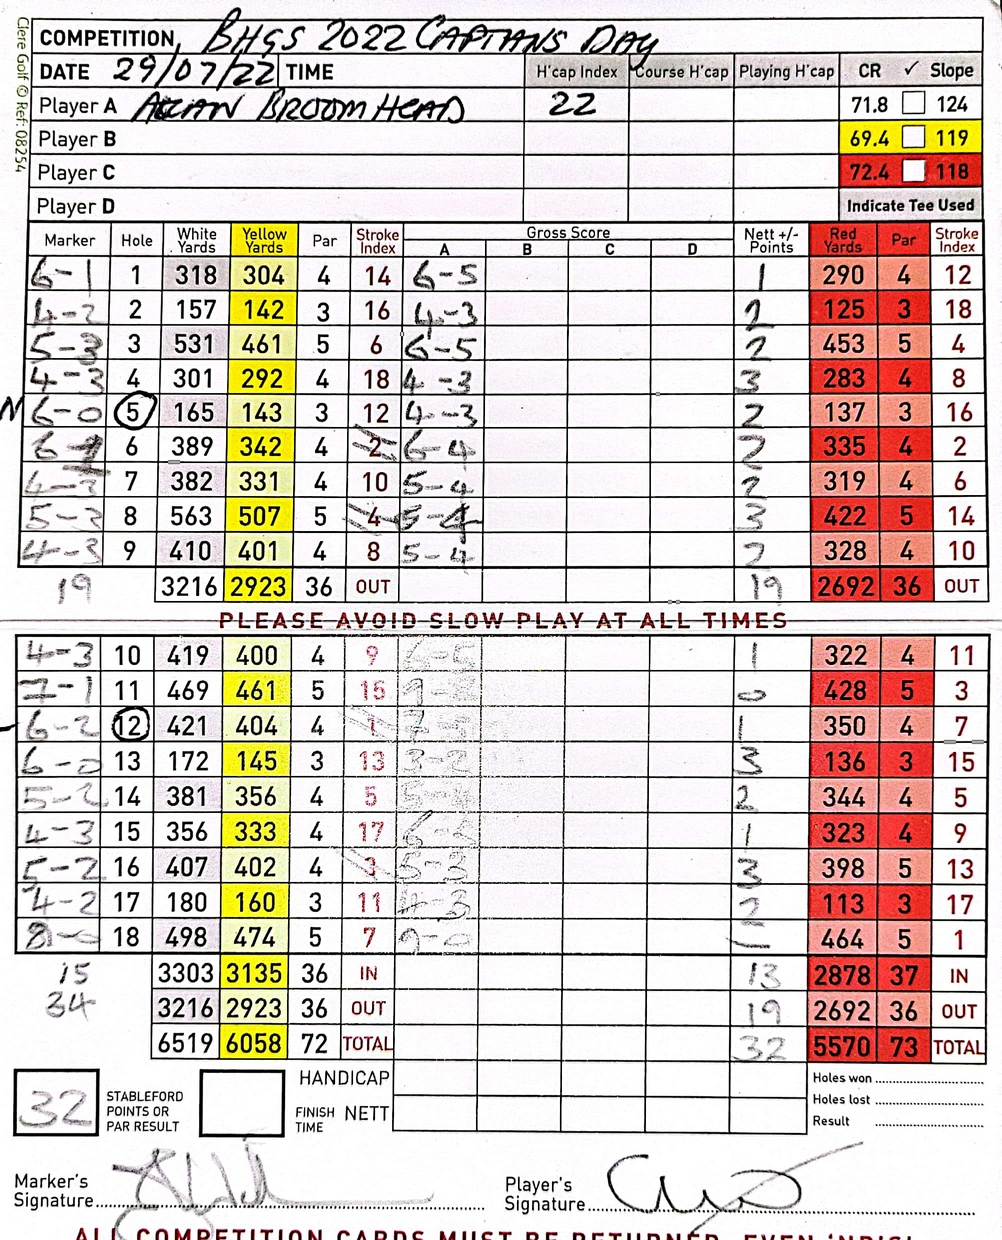 Clere Golf © Ref: 08254
COMPETITION, BHGS 2022 CAPTIANS DAY
DATE 29/07/22 TIME H'cap Index Course H'cap Playing H'cap CR ✓ Slope
Player A ALLAN BROOMHEAD 22 71.8 124
Player B 69.4 119
Player C 72.4 118
Player D Indicate Tee Used
Marker Hole White Yards Yellow Yards Par Stroke Index Gross Score A B C D Nett +/- Points Red Yards Par Stroke Index
6-1 1 318 304 4 14 6-5 1 290 4 12
4-2 2 157 142 3 16 4-3 2 125 3 18
5-3 3 531 461 5 6 6-5 2 453 5 4
4-3 4 301 292 4 18 4-3 3 283 4 8
N 6-0 5 165 143 3 12 4-3 2 137 3 16
6-1 6 389 342 4 2 6-4 2 335 4 2
4-3 7 382 331 4 10 5-4 2 319 4 6
5-2 8 563 507 5 4 5-4 3 422 5 14
4-3 9 410 401 4 8 5-4 2 328 4 10
19 3216 2923 36 OUT 19 2692 36 OUT
PLEASE AVOID SLOW PLAY AT ALL TIMES
4-3 10 419 400 4 9 6-5 1 322 4 11
7-1 11 469 461 5 15 0 428 5 3
6-2 12 421 404 4 1 1 350 4 7
6-0 13 172 145 3 13 3-2 3 136 3 15
5-2 14 381 356 4 5 2 344 4 5
4-3 15 356 333 4 17 1 323 4 9
5-2 16 407 402 4 3 5-3 3 398 5 13
4-2 17 180 160 3 11 4-3 2 113 3 17
8-0 18 498 474 5 7 9-0 — 464 5 1
15 3303 3135 36 IN 13 2878 37 IN
34 3216 2923 36 OUT 19 2692 36 OUT
6519 6058 72 TOTAL 32 5570 73 TOTAL
32 STABLEFORD POINTS OR PAR RESULT FINISH TIME HANDICAP NETT
Holes won
Holes lost
Result
Marker's Signature
Player's Signature
ALL COMPETITION CARDS MUST BE RETURNED, EVEN